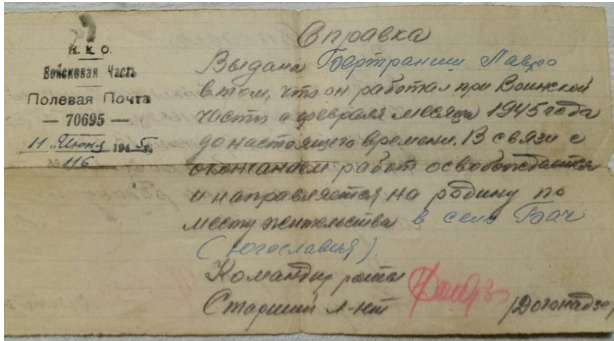 Н. К. О.
Войсковая Часть
Полевая Почта
— 70695 —
11 Июня 1945г.
№ 116
Справка
Выдана Бартранини Лавро
в том, что он работал при Воинской
части с февраля месяца 1945 года
до настоящего времени. В связи с
окончанием работ освобождается
и направляется на родину по
месту жительства в село Бач
(Югославия).
Командир роты
Старший л-нт